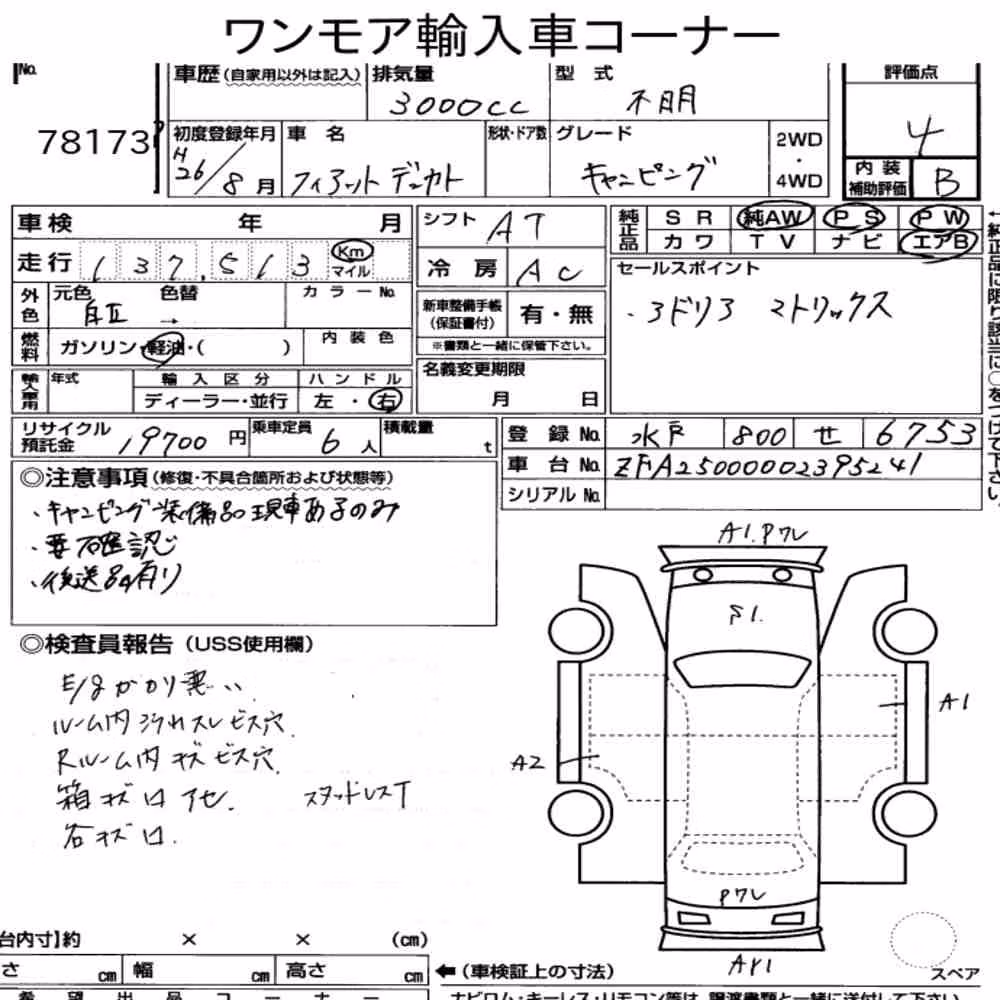 ワンモア輸入車コーナー
No. 78173
車歴(自家用以外は記入) 排気量 3000cc 型式 不明 評価点 4
初度登録年月 H26/8月 車名 フィアット デュカト 形状・ドア数 グレード キャンピング 2WD・4WD 内装補助評価 B
車検 年 月 シフト AT 純正品 SR 純AW PS PW
走行 137,513 Km マイル 冷房 AC カワ TV ナビ エアB
外色 元色 白 色替 → カラーNo. 新車整備手帳(保証書付) 有・無 セールスポイント
・3ドリ3 マトリックス
燃料 ガソリン・軽油・( ) 内装色 ※書類と一緒に保管下さい。
輸入車用 年式 輸入区分 ディーラー・並行 ハンドル 左・右 名義変更期限 月 日
リサイクル預託金 19700円 乗車定員 6人 積載量 t 登録No. 水戸 800 せ 6753
車台No. ZFA25000002395241
シリアルNo.
◎注意事項(修復・不具合箇所および状態等)
・キャンピング装備品現車あるのみ
・要確認
・後送品有り
◎検査員報告(USS使用欄)
E/gかかり悪い
ルーム内汚れスレビス穴
Rルーム内キズビス穴
箱キズロアセ. スタッドレスT
各キズロ.
A1.Pワレ
A1
A2
Pワレ
AY1
スペア
台内寸】約 × × (cm)
さ cm 幅 cm 高さ cm
←(車検証上の寸法)
希望出品コーナー
ナビロム・キーレス・リモコン等は、譲渡書類と一緒に送付して下さい。
←純正品に限り該当に○をつけて下さい。